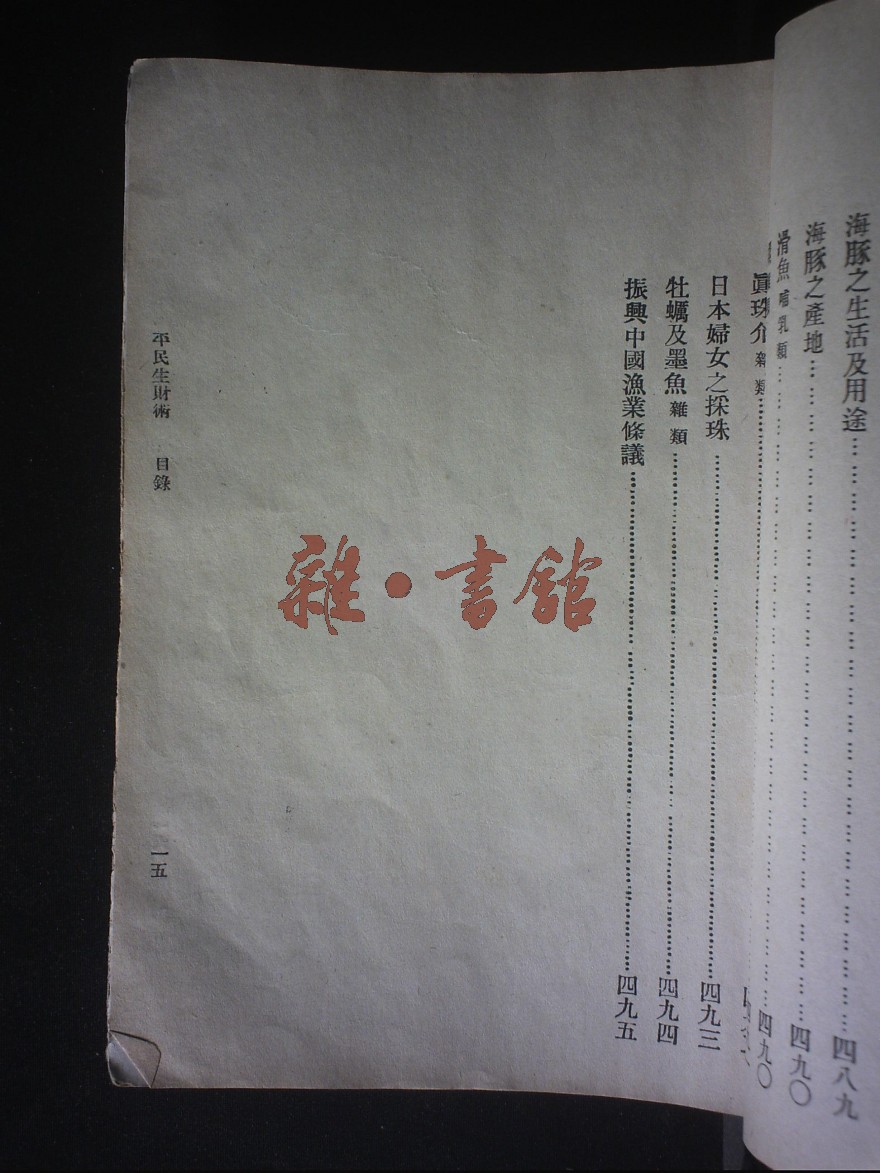 海豚之生活及用途…………四八九
海豚之產地…………四九〇
滑魚 哺乳類…………四九〇
眞珠介 雜類…………
日本婦女之採珠…………四九三
牡蠣及墨魚 雜類…………四九四
振興中國漁業條議…………四九五
平民生財術 目錄 一五
雜·書館